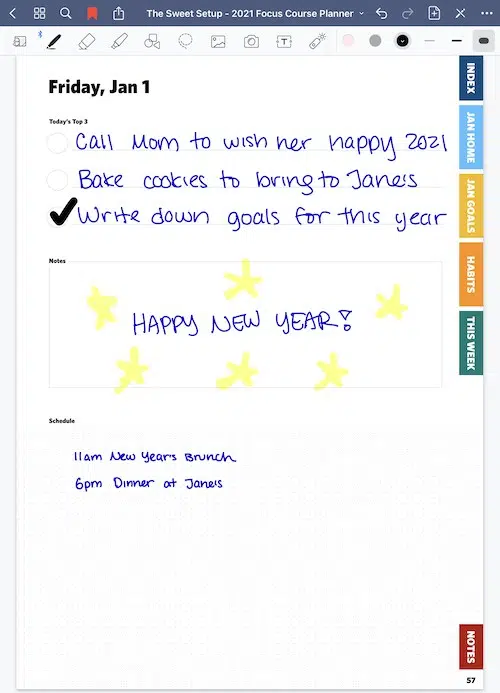 The Sweet Setup - 2021 Focus Course Planner
Friday, Jan 1
Today's Top 3
Call Mom to wish her happy 2021
Bake cookies to bring to Jane's
Write down goals for this year
Notes
HAPPY NEW YEAR!
Schedule
11am New Year's Brunch
6pm Dinner at Jane's
INDEX
JAN HOME
JAN GOALS
HABITS
THIS WEEK
NOTES
57